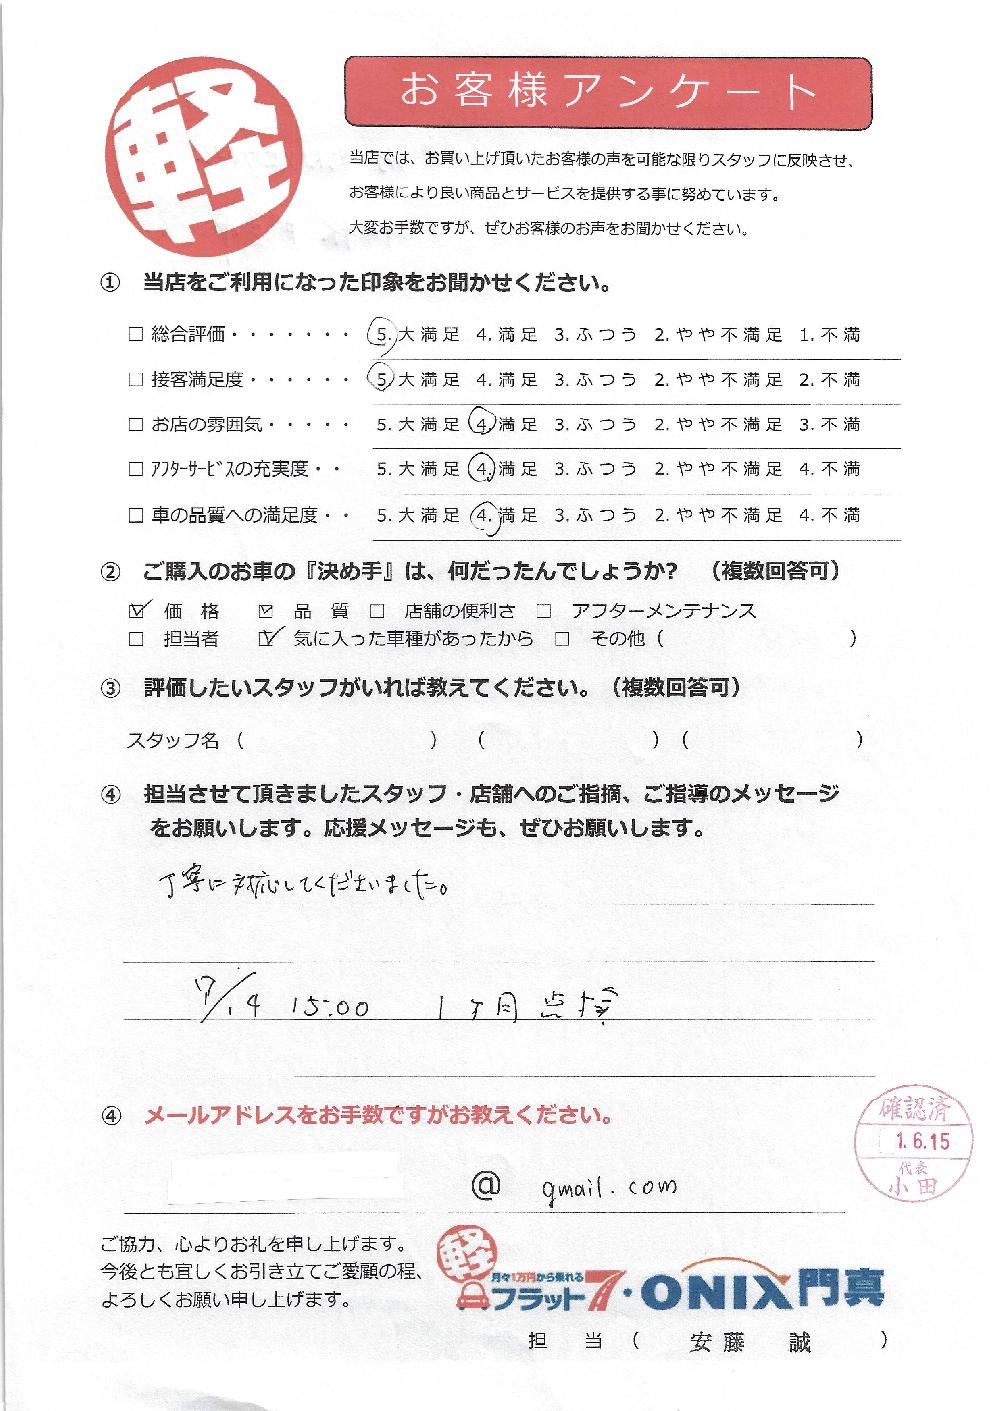 軽
お客様アンケート
当店では、お買い上げ頂いたお客様の声を可能な限りスタッフに反映させ、
お客様により良い商品とサービスを提供する事に努めています。
大変お手数ですが、ぜひお客様のお声をお聞かせください。
① 当店をご利用になった印象をお聞かせください。
□ 総合評価・・・・・・・ 5.大満足 4.満足 3.ふつう 2.やや不満足 1.不満
□ 接客満足度・・・・・・ 5.大満足 4.満足 3.ふつう 2.やや不満足 2.不満
□ お店の雰囲気・・・・・ 5.大満足 4.満足 3.ふつう 2.やや不満足 3.不満
□ ｱﾌﾀｰｻｰﾋﾞｽの充実度・・ 5.大満足 4.満足 3.ふつう 2.やや不満足 4.不満
□ 車の品質への満足度・・ 5.大満足 4.満足 3.ふつう 2.やや不満足 4.不満
② ご購入のお車の『決め手』は、何だったんでしょうか? （複数回答可）
☑ 価格 ☑ 品質 □ 店舗の便利さ □ アフターメンテナンス
□ 担当者 ☑ 気に入った車種があったから □ その他（ ）
③ 評価したいスタッフがいれば教えてください。（複数回答可）
スタッフ名（ ） （ ）（ ）
④ 担当させて頂きましたスタッフ・店舗へのご指摘、ご指導のメッセージ
をお願いします。応援メッセージも、ぜひお願いします。
丁寧に対応してくださいました。
7/14 15:00 1ヶ月点検
④ メールアドレスをお手数ですがお教えください。
確認済
1.6.15
代表
小田
@ gmail.com
ご協力、心よりお礼を申し上げます。
今後とも宜しくお引き立てご愛顧の程、
よろしくお願い申し上げます。
軽
月々1万円から乗れる
フラット7・ONIX門真
担当（ 安藤 誠 ）